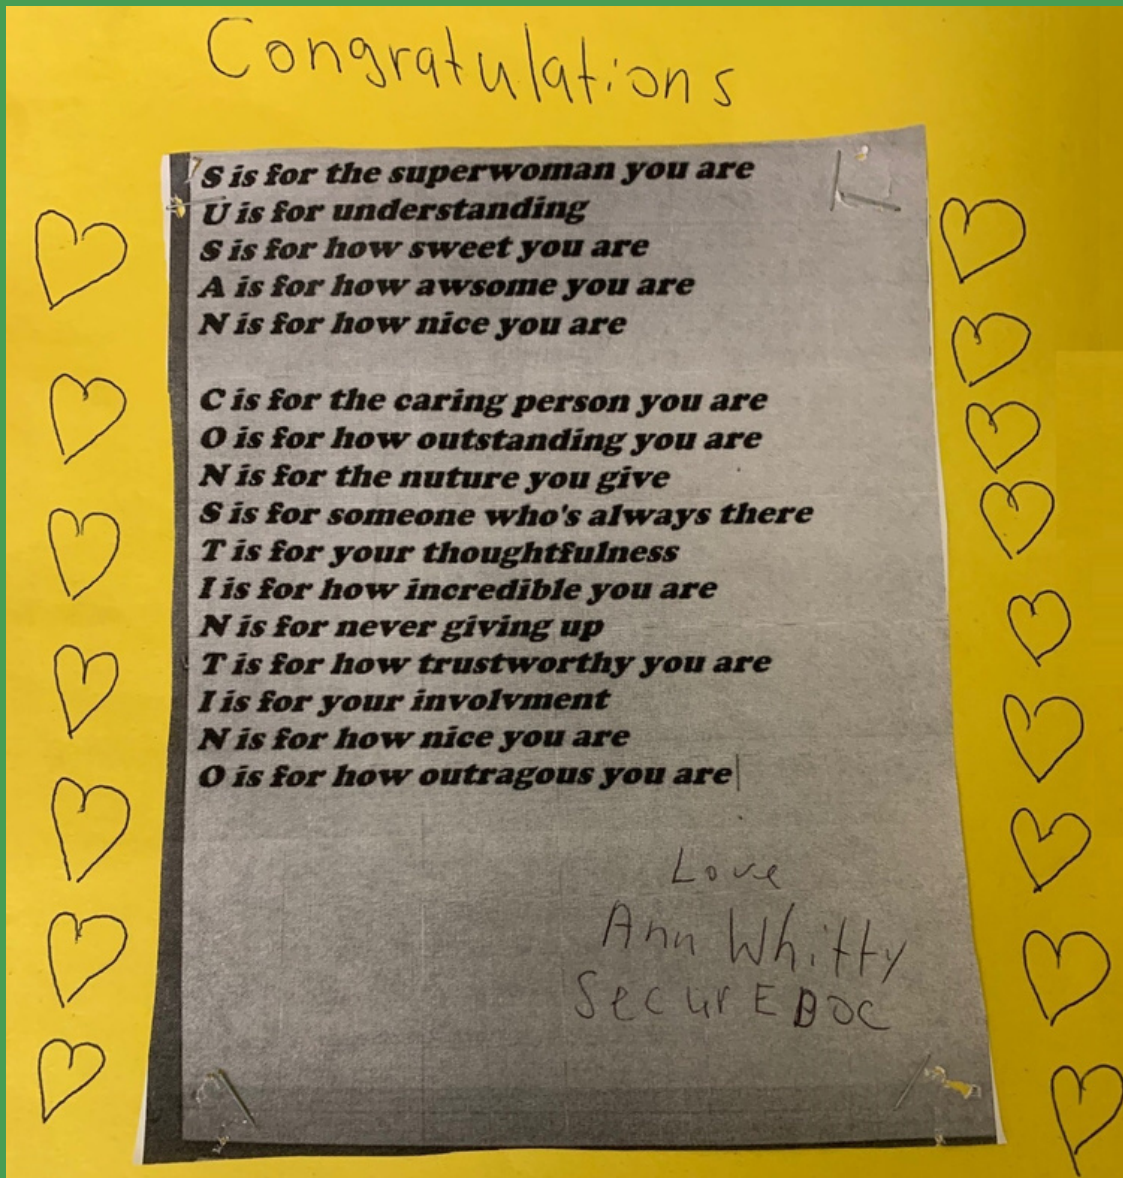 Congratulations
S is for the superwoman you are
U is for understanding
S is for how sweet you are
A is for how awsome you are
N is for how nice you are
C is for the caring person you are
O is for how outstanding you are
N is for the nuture you give
S is for someone who's always there
T is for your thoughtfulness
I is for how incredible you are
N is for never giving up
T is for how trustworthy you are
I is for your involvment
N is for how nice you are
O is for how outragous you are
Love
Ann Whitty
SecurE DOC